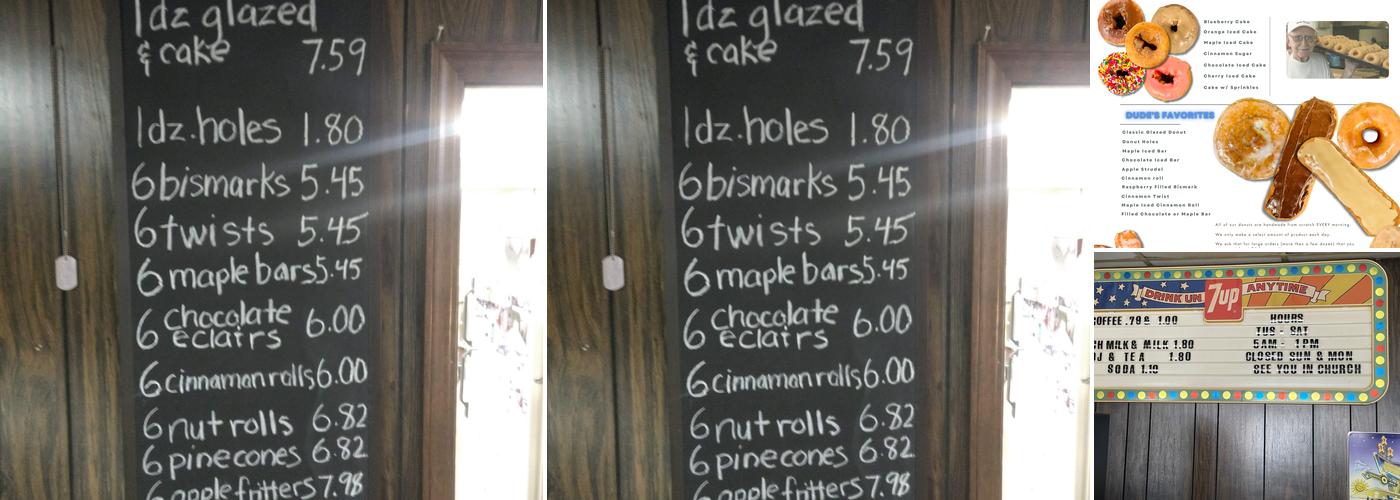 1dz glazed
& cake 7.59
1dz. holes 1.80
6 bismarks 5.45
6 twists 5.45
6 maple bars 5.45
6 chocolate
eclairs 6.00
6 cinnamon rolls 6.00
6 nut rolls 6.82
6 pinecones 6.82
6 apple fritters 7.98
1dz glazed
& cake 7.59
1dz. holes 1.80
6 bismarks 5.45
6 twists 5.45
6 maple bars 5.45
6 chocolate
eclairs 6.00
6 cinnamon rolls 6.00
6 nut rolls 6.82
6 pinecones 6.82
6 apple fritters 7.98
Blueberry Cake
Orange Iced Cake
Maple Iced Cake
Cinnamon Sugar
Chocolate Iced Cake
Cherry Iced Cake
Cake w/ Sprinkles
DUDE'S FAVORITES
Classic Glazed Donut
Donut Holes
Maple Iced Bar
Chocolate Iced Bar
Apple Strudel
Cinnamon roll
Raspberry Filled Bismark
Cinnamon Twist
Maple Iced Cinnamon Roll
Filled Chocolate or Maple Bar
All of our donuts are handmade from scratch EVERY morning.
We only make a select amount of product each day.
We ask that for large orders (more than a few dozen) that you
DRINK UN 7up ANYTIME
OFFEE .79¢ 1.00
CH MILK & MILK 1.80
OJ & TEA 1.80
SODA 1.10
HOURS
TUS - SAT
5AM - 1PM
CLOSED SUN & MON
SEE YOU IN CHURCH